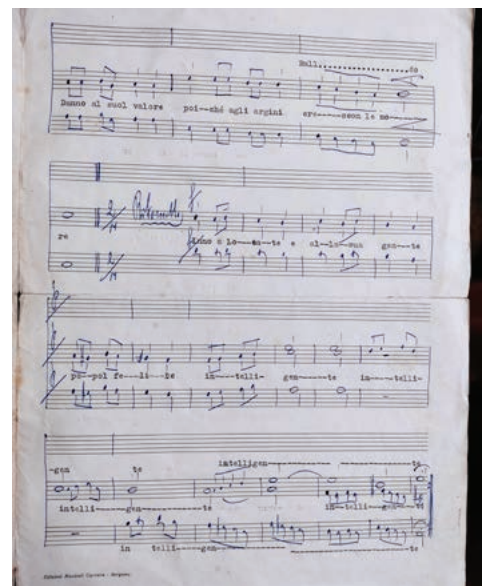 Rall............do
Danno al suol valore poi--ché agli argini cre----scon le mo
re
Ritornello
Inno a Lo--na-te e al-la-sua gen-te
po--pol fe--li-ce in---telli---gen---te in---telli-
-gen te intelligen---------------te
intelli---gen---te in--telli-gen-te
in telli---gen---------------te
Edizioni Musicali Carrara - Bergamo